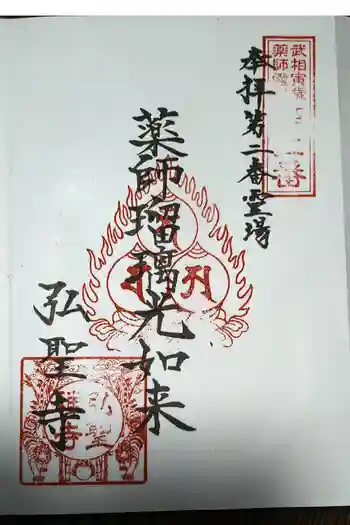 武相寅歳
薬師霊
二番
承拝第二番霊場
薬師瑠璃光如来
弘聖寺
弘聖
禅寺